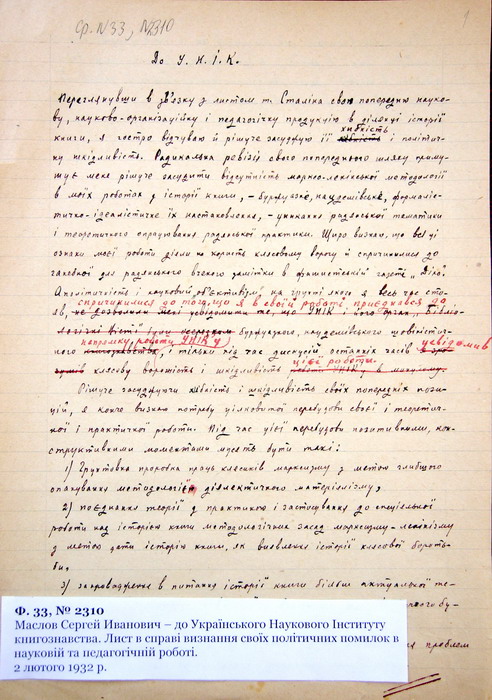 Ф. 33, № 2310
1
До У. Н. І. К.
Переглянувши в зв'язку з листом т. Сталіна свою попередню науко-
ву, науково-організаційну і педагогічну продукцію в ділянці історії
книги, я гостро відчуваю й рішуче засуджую її хибність і політич-
ну шкідливість. Радикальна ревізія свого попереднього шляху приму-
шує мене рішуче засудити відсутність марксо-ленінської методології
в моїх роботах з історії книги, – буржуазне, нацдемівське, формаліс-
тично-ідеалістичне їх наставлення, – уникання радянської тематики
і теоретичного опрацювання радянської практики. Щиро визнаю, що всі ці
ознаки моєї роботи діяли на користь класовому ворогу й спричинилися до
ганебної для радянського вченого замітки в фашистській газеті „Діло".
Аполітичність і „науковий об'єктивізм", на ґрунті якого я весь час сто-
яв, спричинилися до того, що я в своїй роботі приєднався до
не дозволили мені усвідомити те, що УНІК і його орган „Бібліо-
логічні вісті" були буржуазного, нацдемівського шовіністич-
ного напрямку роботи УНІК'у, і тільки під час дискусій останніх часів усвідомив
класову ворожість і шкідливість цієї роботи.
Рішуче засуджуючи хибність і шкідливість своїх попередніх пози-
цій, я конче визнаю потребу цілковитої перебудови своєї і теоретич-
ної і практичної роботи. Під час цієї перебудови позитивними, кон-
структивними моментами мусять бути такі:
1) Ґрунтовна проробка праць класиків марксизму з метою глибшого
опанування методології діялектичного матеріялізму,
2) поєднання теорії з практикою і застосування до спеціяльної
роботи над історією книги методологічних засад марксизму-ленінізму
з метою дати історію книги, як виявлення історії класової бороть-
би,
3) запровадження в питання історії книги більш актуальної те-
проблем
Ф. 33, № 2310
Маслов Сергей Иванович – до Українського Наукового Інституту
книгознавства. Лист в справі визнання своїх політичних помилок в
науковій та педагогічній роботі.
2 лютого 1932 р.